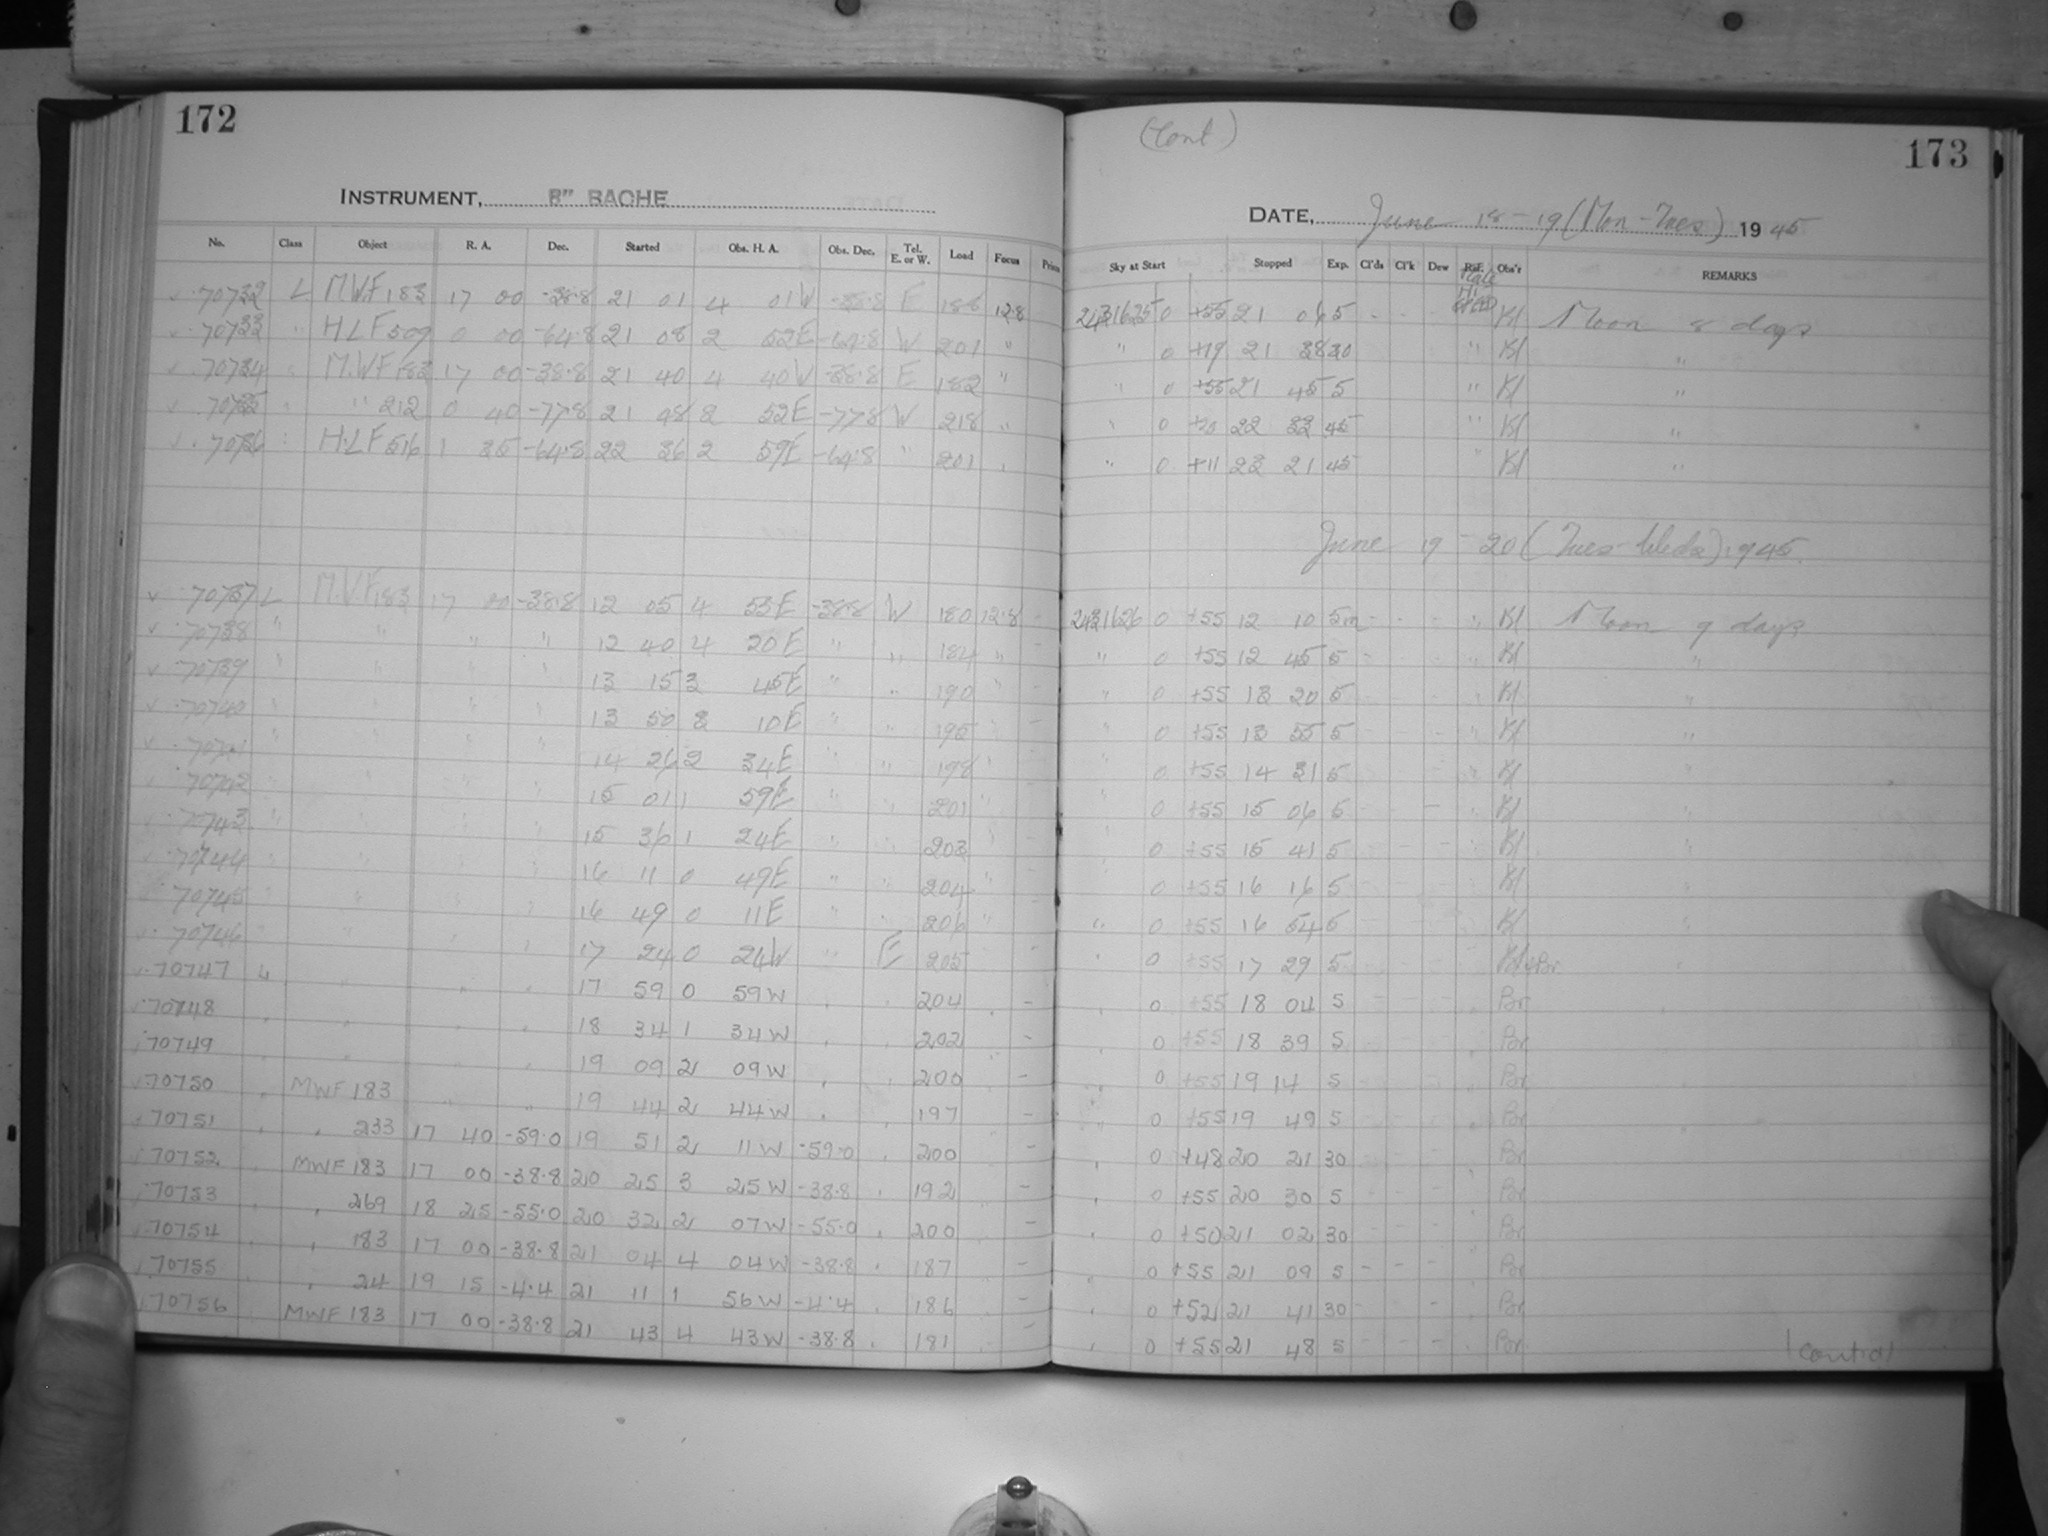 172
INSTRUMENT, 8" BACHE
No. Class Object R. A. Dec. Started Obs. H. A. Obs. Dec. Tel. E. or W. Load Focus Prism
70732 L MWF 183 17 00 -38.8 21 01 4 01W -38.8 E 188 12.8
70733 " HLF 509 0 00 -64.8 21 08 2 52E -64.8 W 201 "
70734 " MWF 183 17 00 -38.8 21 40 4 40W -38.8 E 182 "
70735 " " 212 0 40 -77.8 21 48 2 52E -77.8 W 218 "
70736 " HLF 516 1 35 -64.8 22 36 2 59E -64.8 " 201 "
70737 L MWF 183 17 00 -38.8 12 05 4 55E -38.8 W 180 12.8
70738 " " " " 12 40 4 20E " " 184 "
70739 " " " " 13 15 3 45E " " 190 "
70740 " " " " 13 50 3 10E " " 195 "
70741 " " " " 14 26 2 34E " " 198 "
70742 " " " " 15 01 1 59E " " 201 "
70743 " " " " 15 36 1 24E " " 203 "
70744 " " " " 16 11 0 49E " " 204 "
70745 " " " " 16 49 0 11E " " 206 "
70746 " " " " 17 24 0 24W " E 205
70747 L " " " 17 59 0 59W " " 204 " -
70748 " " " " 18 34 1 34W " " 202 -
70749 " " " " 19 09 2 09W " " 200 " -
70750 " MWF 183 " " 19 44 2 44W " " 197 -
70751 " " 233 17 40 -59.0 19 51 2 11W -59.0 " 200 -
70752 " MWF 183 17 00 -38.8 20 25 3 25W -38.8 " 192 -
70753 " " 269 18 25 -55.0 20 32 2 07W -55.0 " 200 -
70754 " " 183 17 00 -38.8 21 04 4 04W -38.8 " 187 -
70755 " " 24 19 15 -4.4 21 11 1 56W -4.4 " 186 -
70756 " MWF 183 17 00 -38.8 21 43 4 43W -38.8 " 181 -
(Cont.)
173
DATE, June 18-19 (Mon-Tues) 1945
Sky at Start Stopped Exp. Cl'ds Cl'k Dew Ref. Obs'r REMARKS
2431625 0 +55 21 06 5 - - - Kl Moon 8 days
" 0 +19 21 38 30 " Kl "
" 0 +55 21 45 5 " Kl "
" 0 +20 22 33 45 " Kl "
" 0 +11 23 21 45 " Kl "
June 19-20 (Tues-Weds) 1945.
2431626 0 +55 12 10 5m - - - " Kl Moon 9 days
" 0 +55 12 45 5 - - - " Kl "
" 0 +55 13 20 5 - - - " Kl "
" 0 +55 13 55 5 - - - " Kl "
" 0 +55 14 31 5 - - - " Kl "
" 0 +55 15 06 5 - - - " Kl "
" 0 +55 15 41 5 - - - " Kl "
0 +55 16 16 5 - - - " Kl "
" 0 +55 16 54 5 - - - " Kl "
" 0 +55 17 29 5 - - - " Kl+Br
" 0 +55 18 04 5 - - - " Br
" 0 +55 18 39 5 - - - " Br
" 0 +55 19 14 5 - - - " Br
" 0 +55 19 49 5 - - - " Br
" 0 +48 20 21 30 - - - " Br
" 0 +55 20 30 5 - - - " Br
" 0 +50 21 02 30 - - - " Br
" 0 +55 21 09 5 - - - " Br
" 0 +52 21 41 30 - - - " Br
" 0 +55 21 48 5 - - - " Br
(contd)